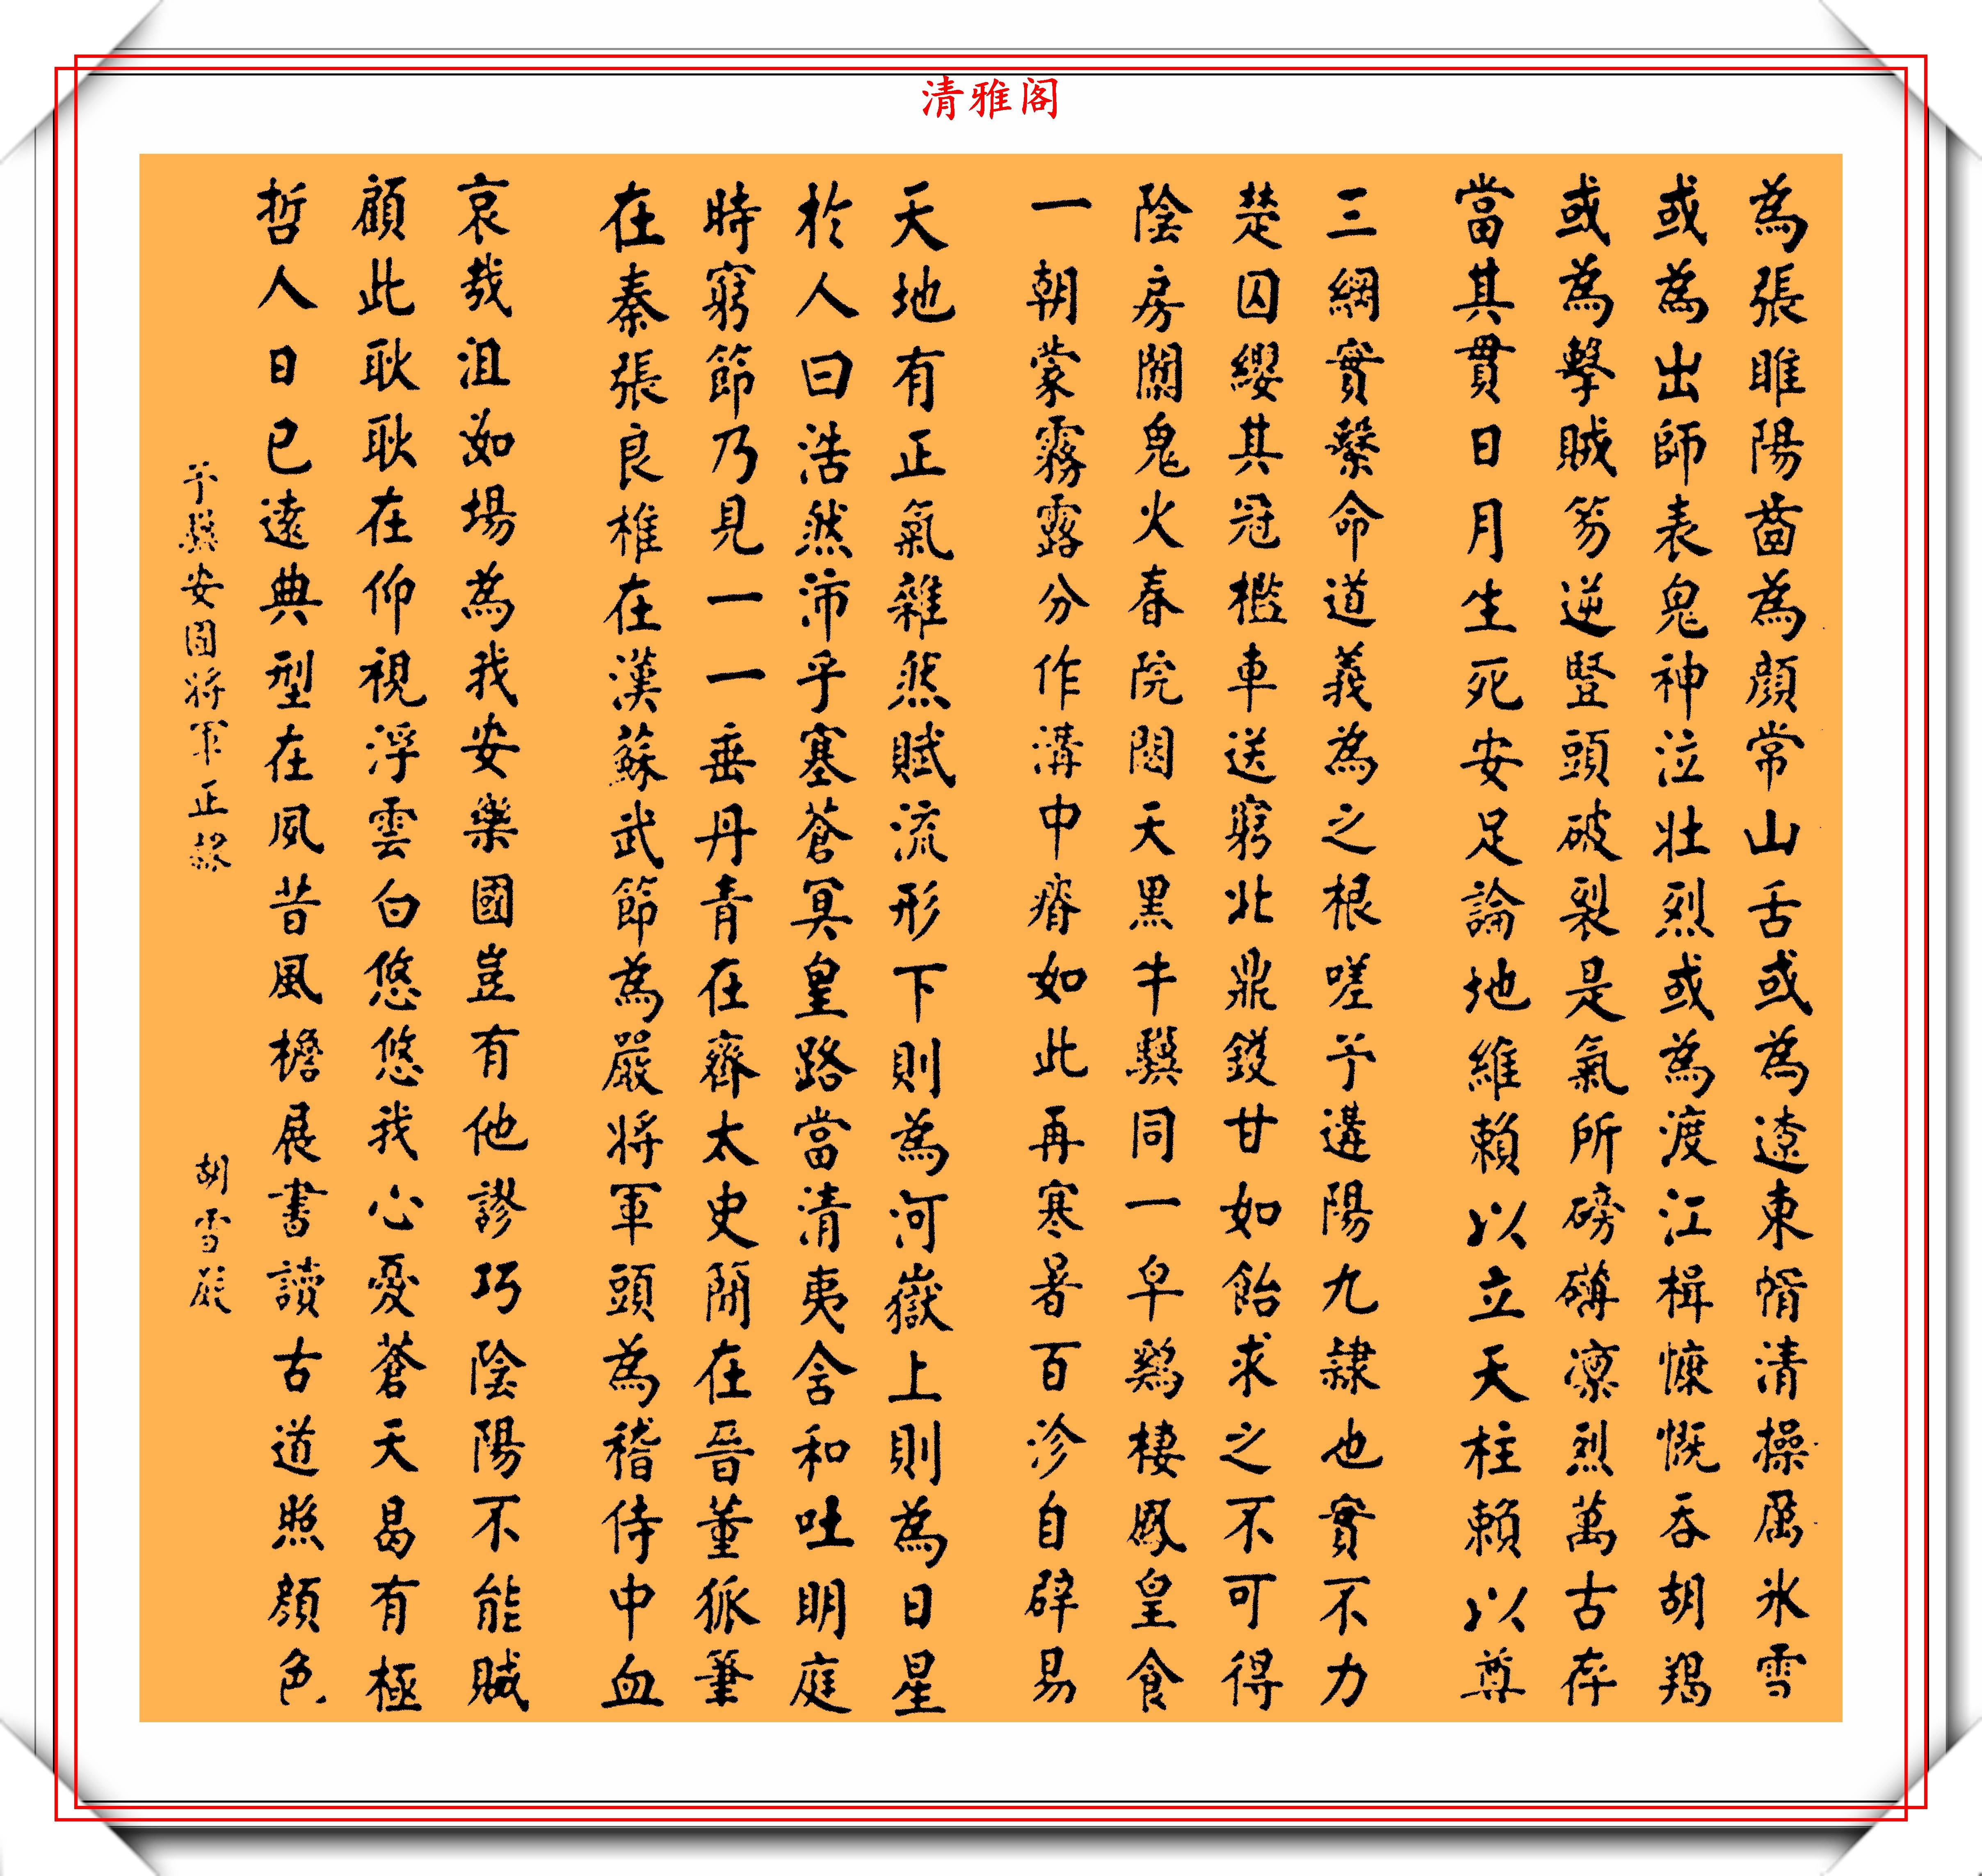 清雅阁
為張睢陽齒為顏常山舌或為遼東帽清操厲冰雪
或為出師表鬼神泣壯烈或為渡江楫慷慨吞胡羯
或為擊賊笏逆豎頭破裂是氣所磅礴凛烈萬古存
當其貫日月生死安足論地維賴以立天柱賴以尊
三綱實繫命道義為之根嗟予遘陽九隸也實不力
楚囚纓其冠檻車送窮北鼎鑊甘如飴求之不可得
陰房闃鬼火春院閟天黑牛驥同一皁鷄棲鳳皇食
一朝蒙霧露分作溝中瘠如此再寒暑百沴自辟易
天地有正氣雜然賦流形下則為河嶽上則為日星
於人曰浩然沛乎塞蒼冥皇路當清夷含和吐明庭
時窮節乃見一一垂丹青在齊太史簡在晉董狐筆
在秦張良椎在漢蘇武節為嚴將軍頭為稽侍中血
哀哉沮如場為我安樂國豈有他謬巧陰陽不能賊
顧此耿耿在仰視浮雲白悠悠我心憂蒼天曷有極
哲人日已遠典型在夙昔風檐展書讀古道照顏色
驥安將軍正
胡雪巖